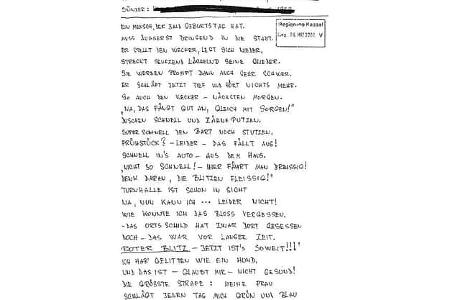 SÜNDER:
Regierung Kassel
EIN MENSCH, DER BALD GEBURTSTAG HAT.
MUSS ÄUSSERST DRINGEND IN DIE STADT.
ER STELLT DEN WECKER, LEGT SICH NIEDER,
STRECKT SEUFZEND LÄCHELND SEINE GLIEDER.
SIE WERDEN PROMPT DANN AUCH SEHR SCHWER.
ER SCHLÄFT JETZT TIEF UND HÖRT NICHTS MEHR.
SO AUCH DEN WECKER - NÄCHSTEN MORGEN.
„NA, DAS FÄNGT GUT AN, GLEICH MIT SORGEN!"
DUSCHEN SCHNELL UND ZÄHNEPUTZEN.
SUPERSCHNELL DEN BART NOCH STUTZEN.
FRÜHSTÜCK? - LEIDER - DAS FÄLLT AUS!
SCHNELL IN'S AUTO - AUS DEM HAUS.
„NICHT SO SCHNELL! - HIER FÄHRT MAN DREISSIG!
DENK DARAN, DIE BLITZEN FLEISSIG!"
TURNHALLE IST SCHON IN SICHT
NA, NUN KANN ICH ... LEIDER NICHT!
WIE KONNTE ICH DAS BLOSS VERGESSEN.
- DAS ORTSSCHILD HAT ZWAR DORT GESESSEN
DOCH - DAS WAR VOR LANGER ZEIT.
ROTER BLITZ - JETZT IST'S SOWEIT!!!"
ICH HAB GELITTEN WIE EIN HUND,
UND DAS IST - GLAUBT MIR - NICHT GESUND!
DIE GRÖSSTE STRAFE: MEINE FRAU
SCHLÄGT JEDEN TAG MICH GRÜN UND BLAU